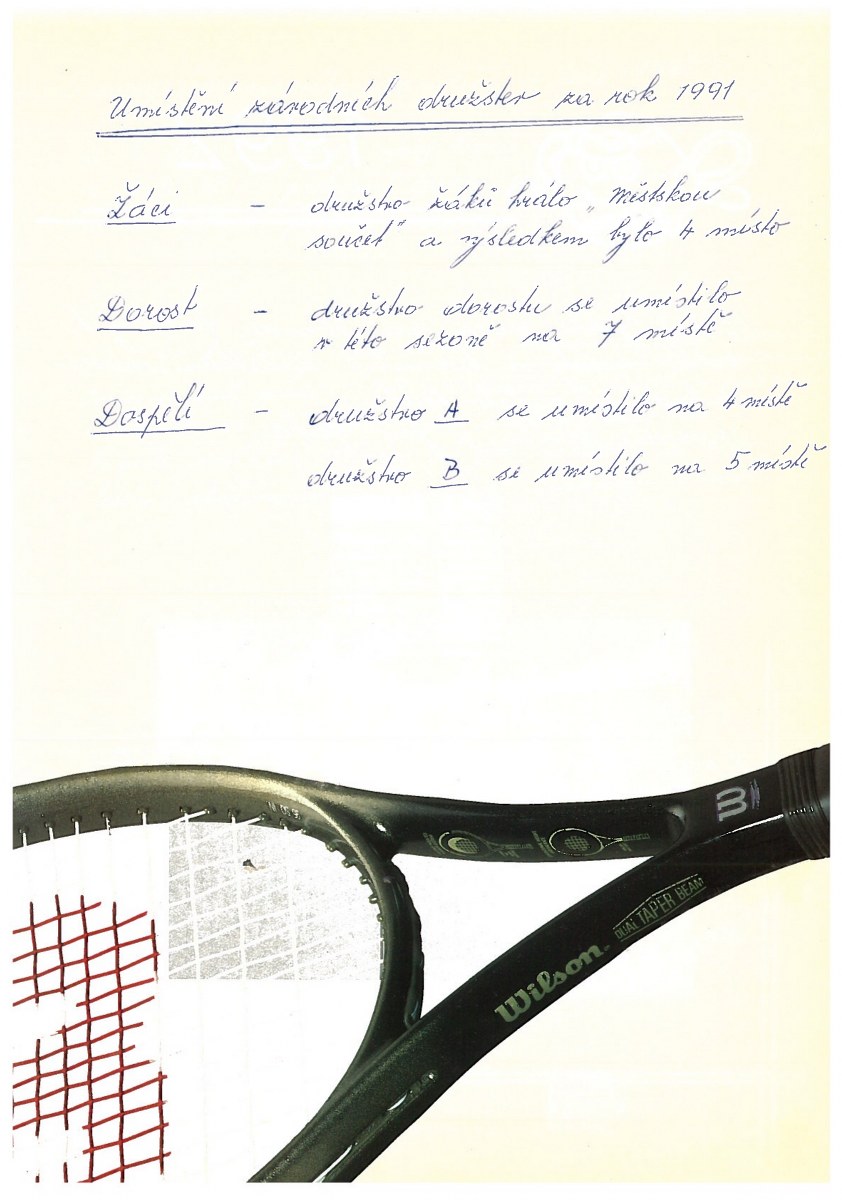 Umístění závodních družstev za rok 1991
Žáci - družstvo žáků hrálo „Městskou
součet" a výsledkem bylo 4 místo
Dorost - družstvo dorostu se umístilo
v této sezoně na 7 místě
Dospělí - družstvo A se umístilo na 4 místě
družstvo B se umístilo na 5 místě
Wilson
DUAL TAPER BEAM